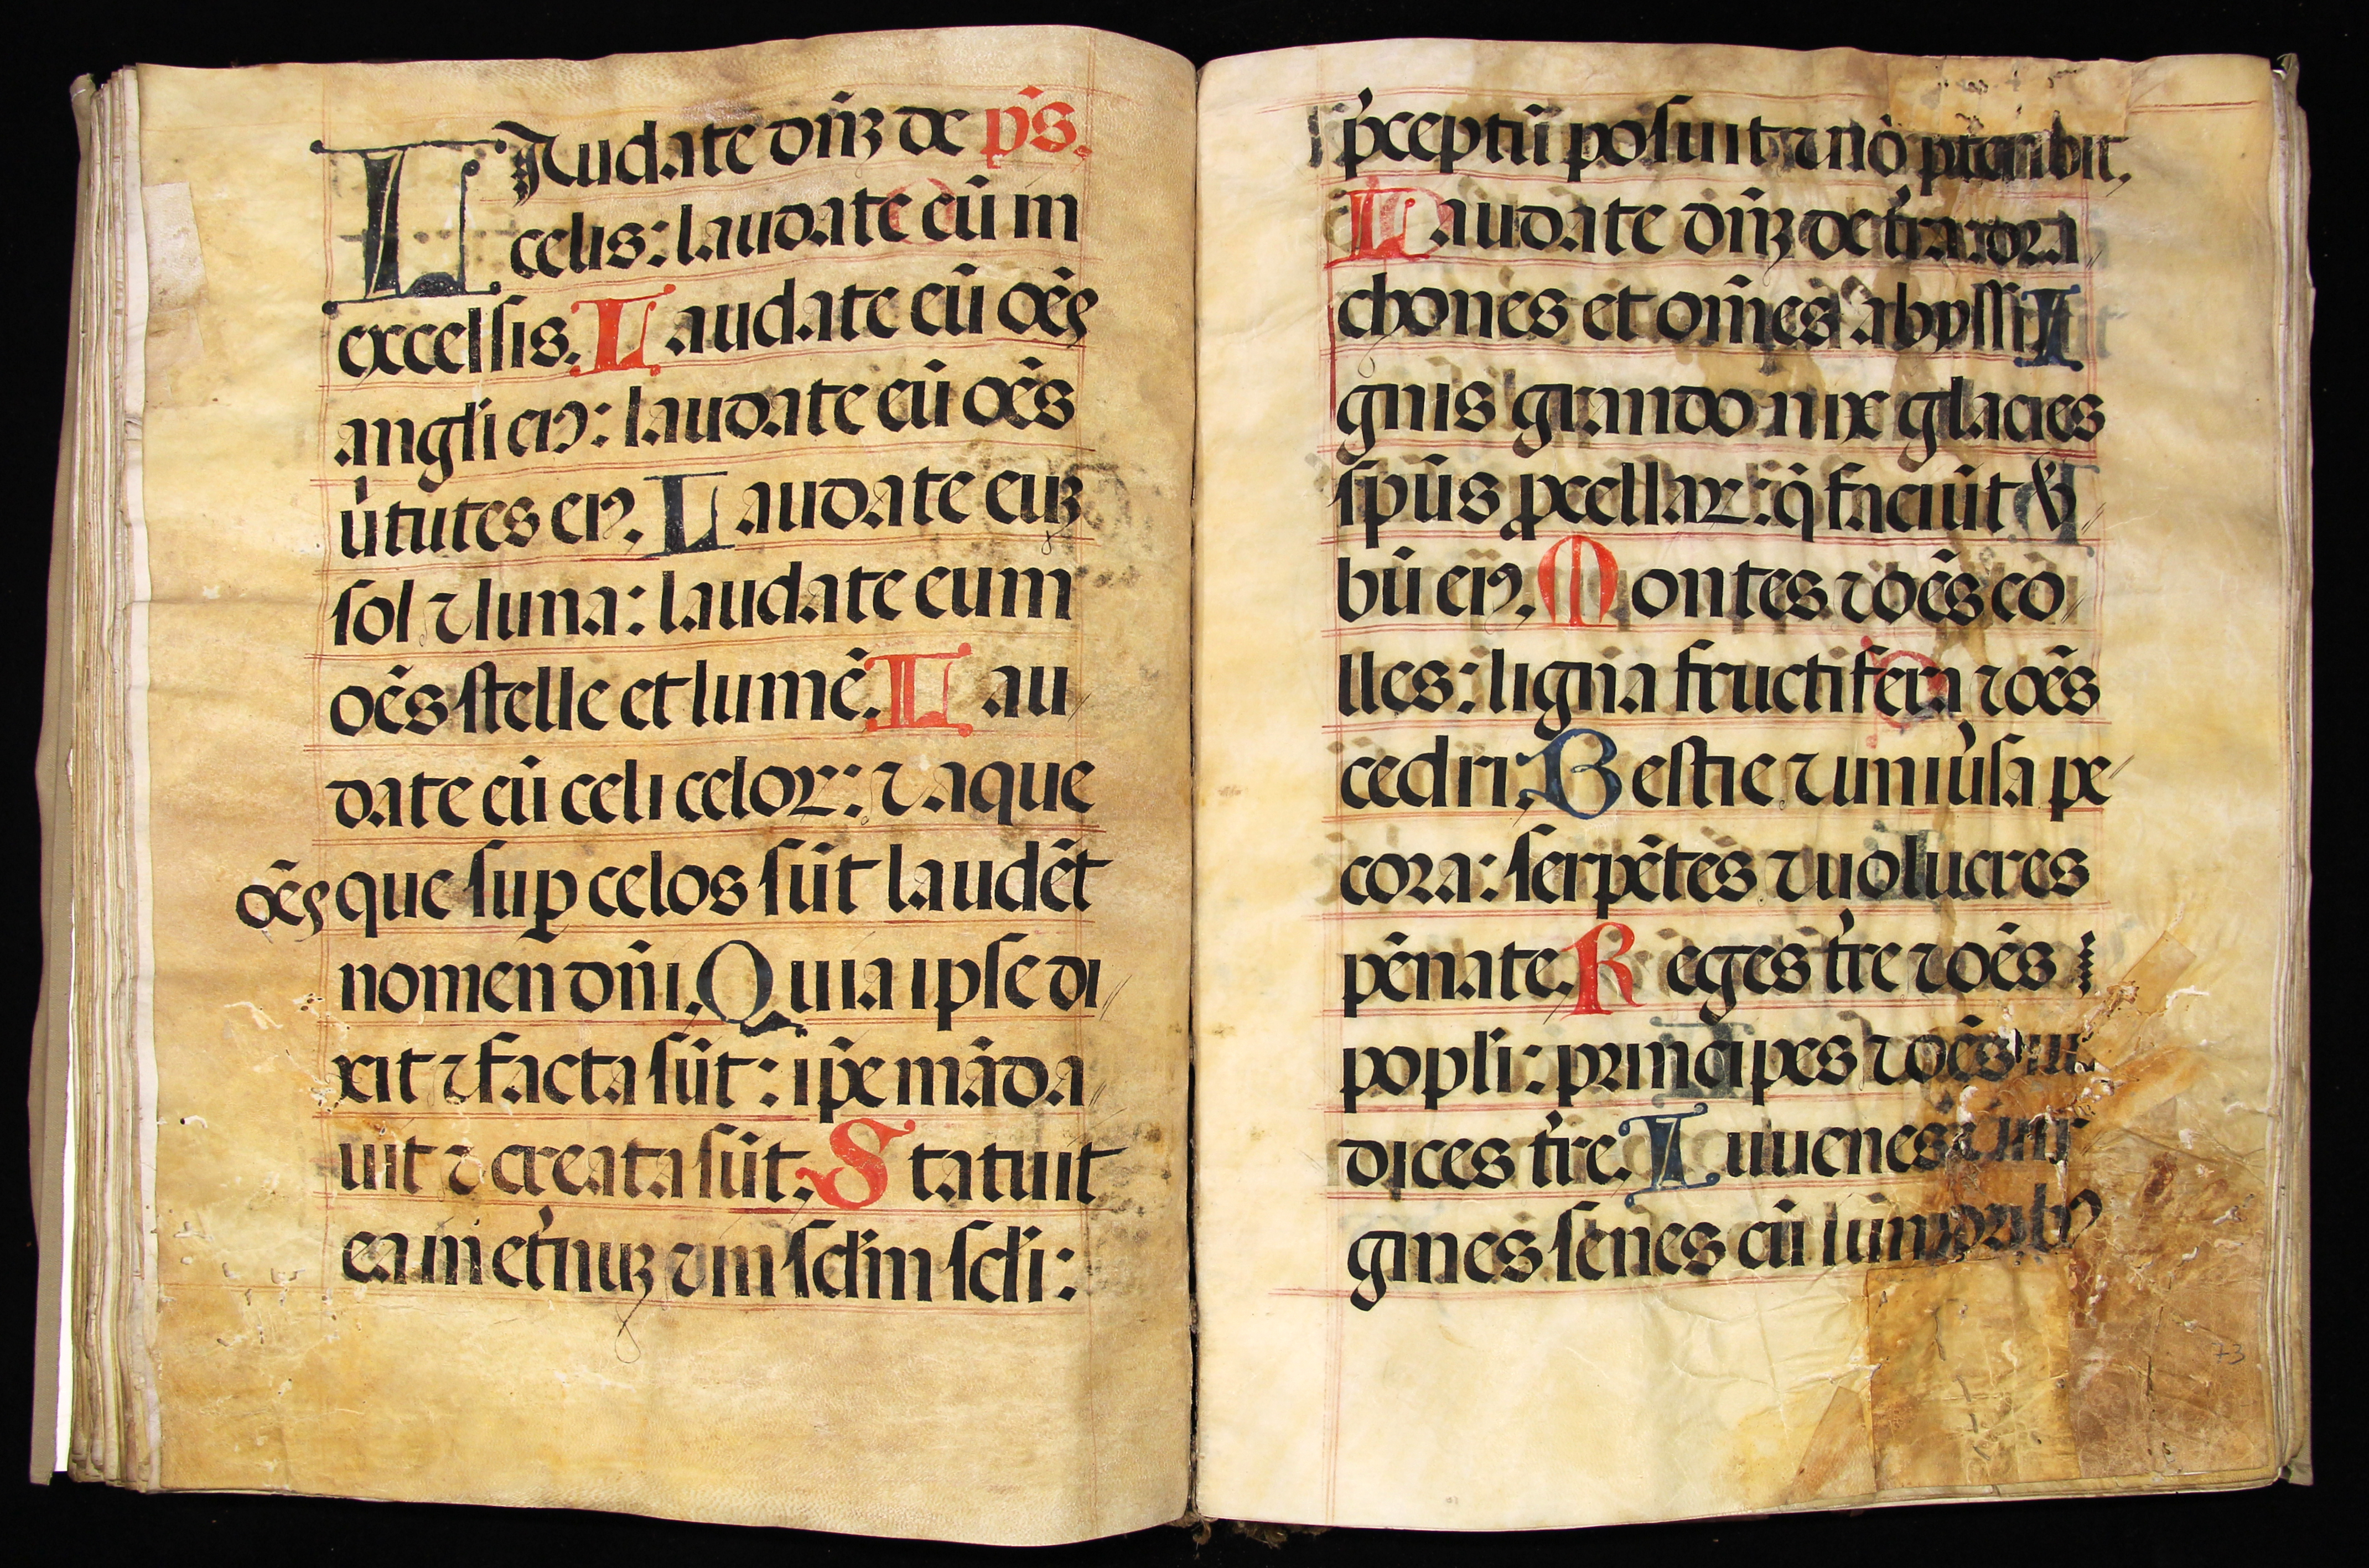 LAudate dñꝫ de p̃s.
celis: laudate eũ in
excelsis. Laudate eũ oẽs
angli eiꝰ: laudate eũ oẽs
ũtutes eiꝰ. Laudate euꝫ
sol ⁊ luna: laudate eum
oẽs stelle et lumẽ. Lau
date eũ celi celoꝝ: ⁊ aque
oẽs que suꝑ celos sũt laudẽt
nomen dñi. Quia ipse di
xit ⁊ facta sũt: ip̃e mãda
uit ⁊ creata sũt. Statuit
ea in et̾nuꝫ ⁊ in sclm̃ scli:
p̃ceptũ posuit ⁊ nõ pteribit.
Laudate dñꝫ de t̾ra dra
chones et om̃es abyssi I
gnis grando nix glacies
sp̃us ꝓcellaꝝ: q̃ faciũt v̾
bũ eiꝰ. Montes ⁊ oẽs co
lles: ligna fructifera ⁊ oẽs
cedri: Bestie ⁊ uniu̾sa pe
cora: serpẽtes ⁊ uolucres
pẽnate. Reges t̾re ⁊ oẽs
popli: principes ⁊ oẽs iu
dices t̾re. Iuuenes ⁊ uir
gines senes cũ iũnioribꝰ
73